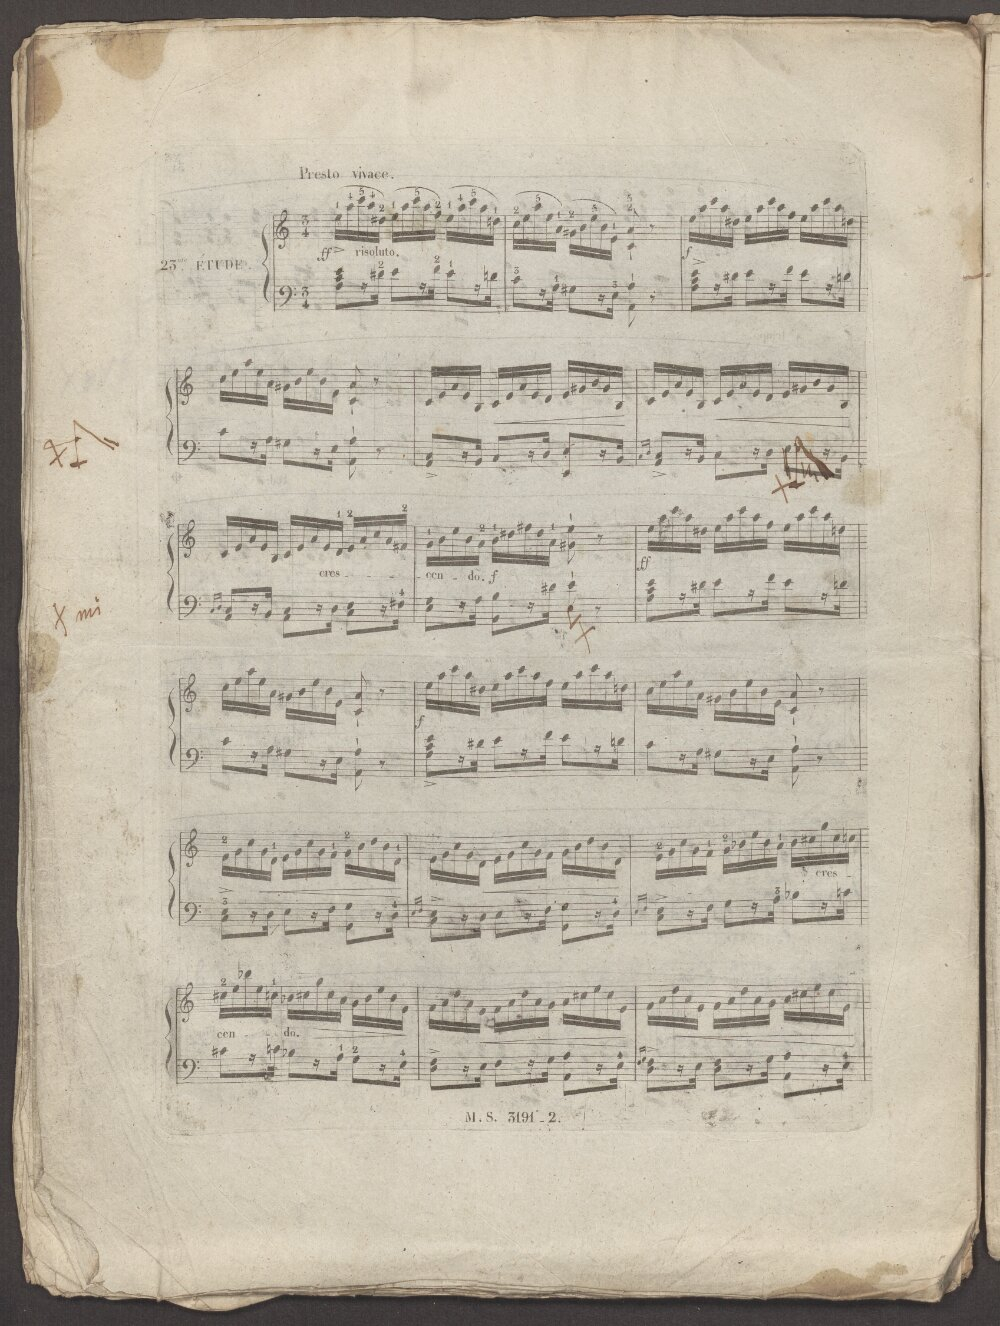 Presto vivace.
23me ÉTUDE.
ff risoluto.
f
cres - - - cen - do. f
ff
x mi
f
cres -
cen - do.
M. S. 3191 - 2.